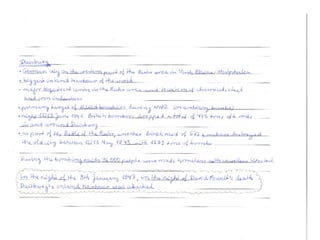 Duisburg
- German city in the western part of the Ruhr area in North Rhine-Westphalia
- biggest inland harbour of the world
- major logistical centre in the Ruhr area and location of chemical, steel
and iron industries
- primary target of Allied bombers during WW2 (incendiary bombs)
- night 12/13 June 1941: British bombers dropped a total of 445 tons of bombs
in and around Duisburg
- as part of the Battle of the Ruhr, another British raid of 577 bombers destroyed
the old city between 12/13 May 1943 with 1599 tons of bombs
During the bombing raids 96 000 people were made homeless with countless lives lost
In the night of the 8th January 1945, in the night of David Smith's death
Duisburg's inland harbour was attacked